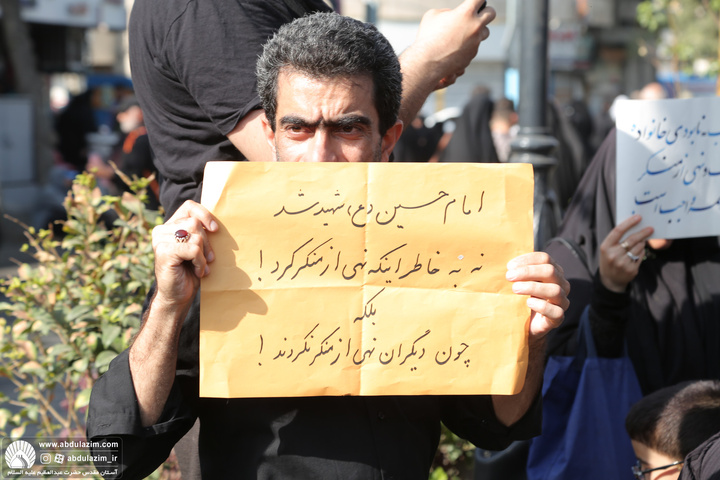 امام حسین (ع) شهید شد
نه به خاطر اینکه نهی از منکر کرد !
بلکه
چون دیگران نهی از منکر نکردند !
نابودی خانواده:
نهی از منکر
واجب است
www.abdulazim.com
abdulazim_ir
آستان مقدس حضرت عبدالعظیم علیه السلام